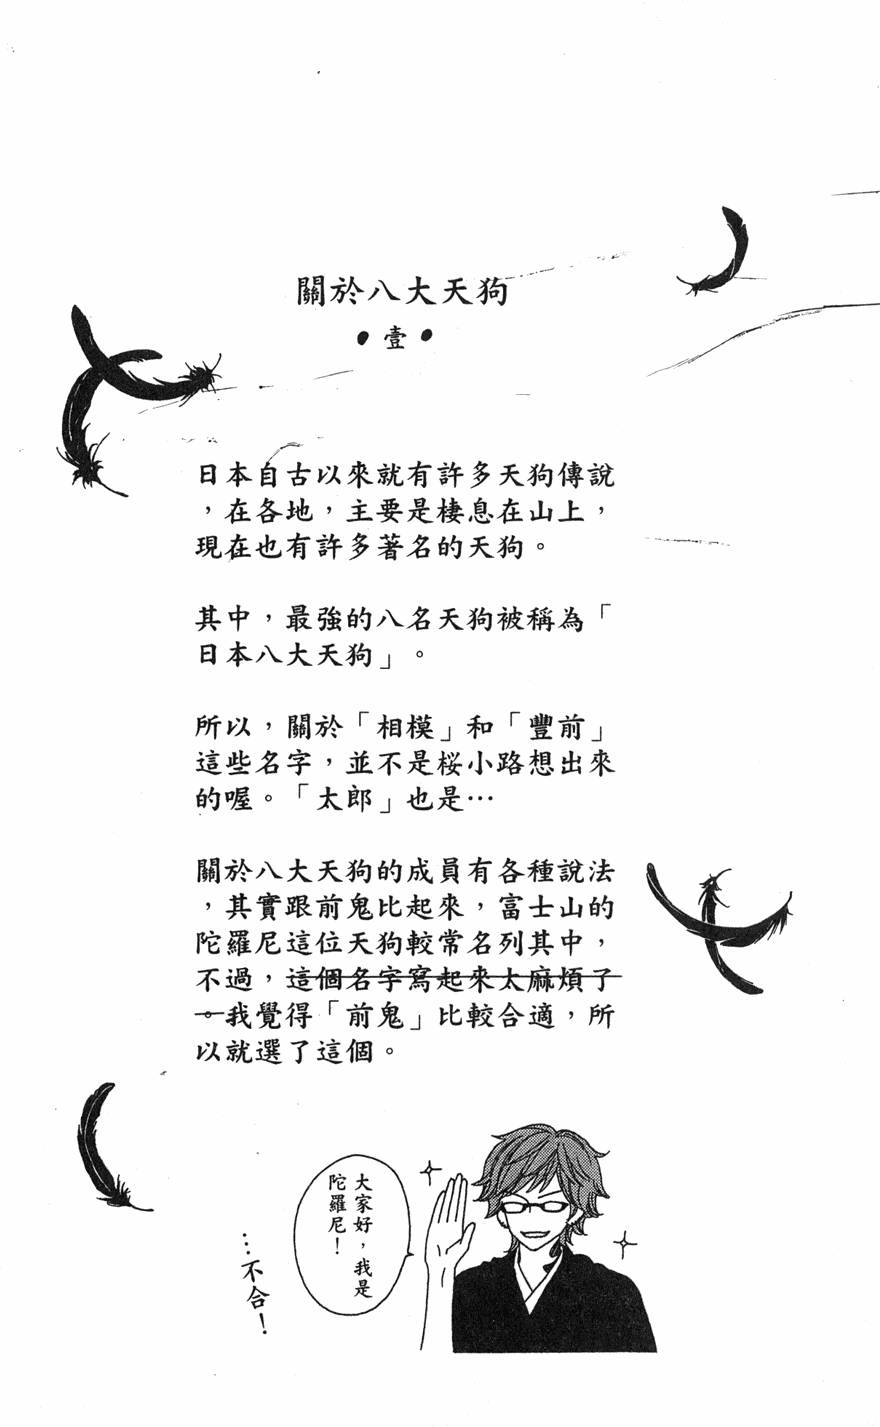 關於八大天狗
•壹•
日本自古以來就有許多天狗傳說
，在各地，主要是棲息在山上，
現在也有許多著名的天狗。
其中，最強的八名天狗被稱為「
日本八大天狗」。
所以，關於「相模」和「豐前」
這些名字，並不是桜小路想出來
的喔。「太郎」也是…
關於八大天狗的成員有各種說法
，其實跟前鬼比起來，富士山的
陀羅尼這位天狗較常名列其中，
不過，這個名字寫起來太麻煩了
。我覺得「前鬼」比較合適，所
以就選了這個。
大家好，我是
陀羅尼！
…不合！